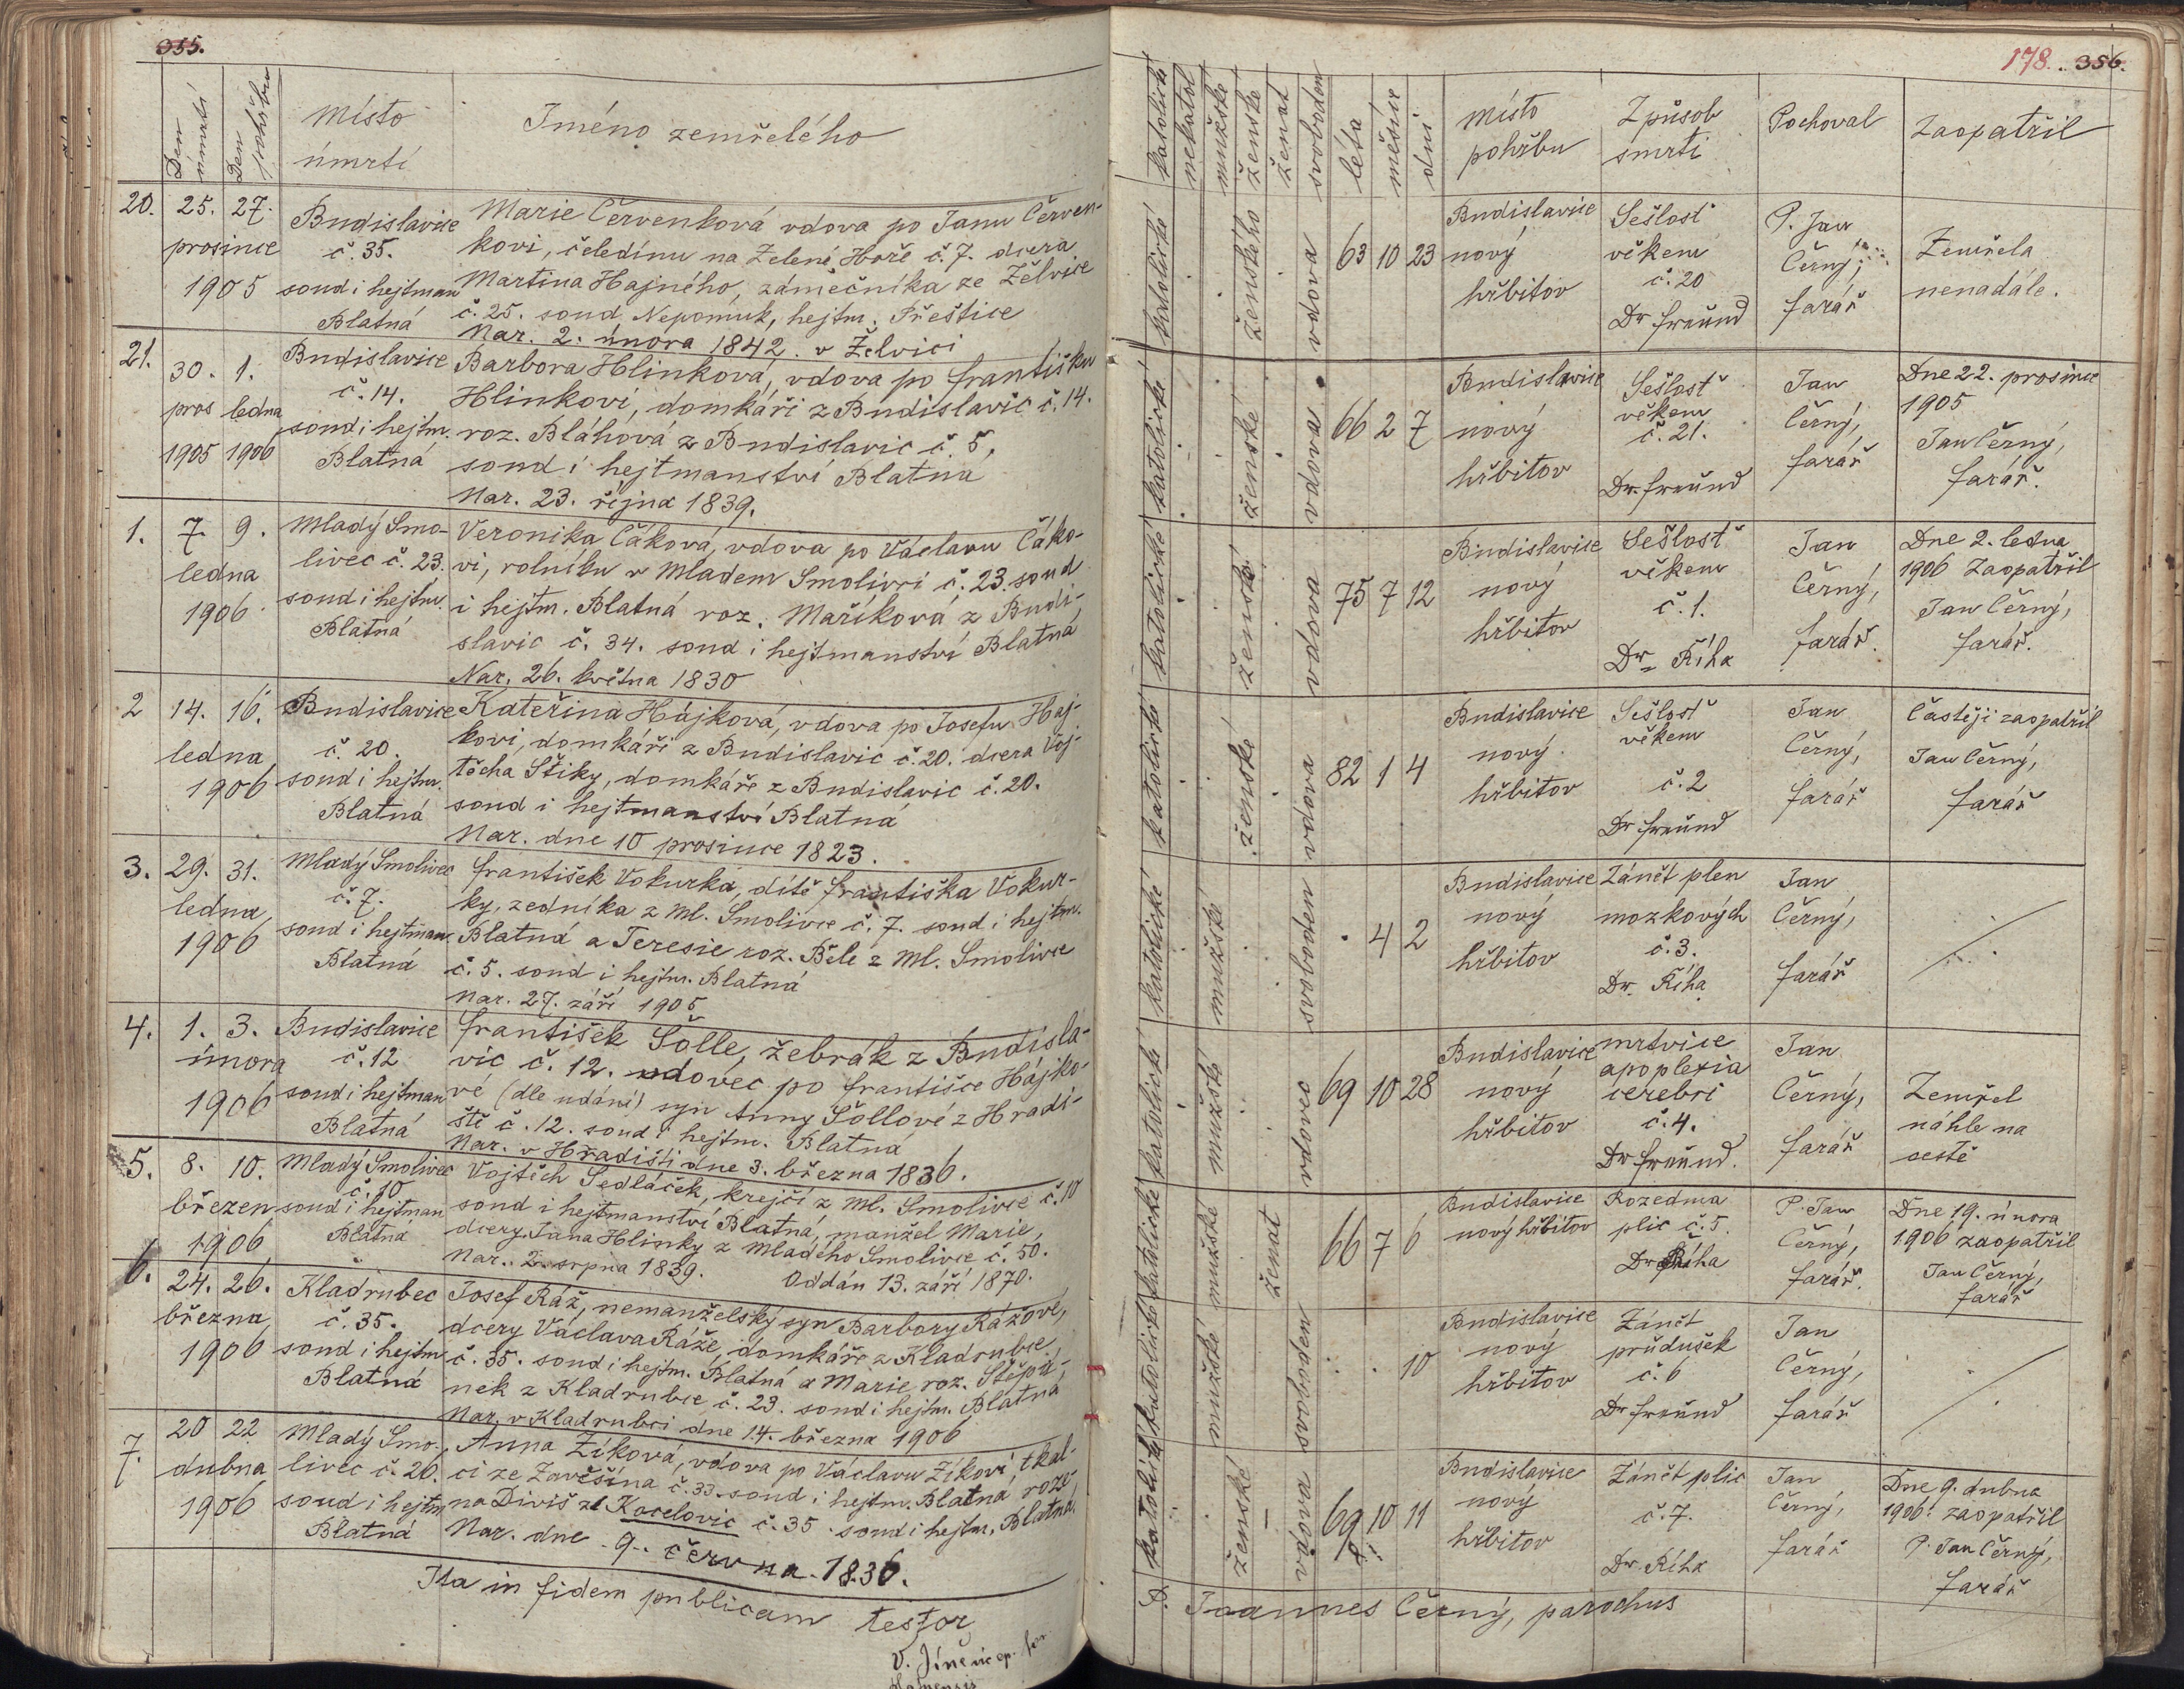 355.
Den úmrtí
Den pohřbu
Místo
úmrtí
Jméno zemřelého
20. 25. 27.
prosince
1905
Budislavice
č. 35.
soud i hejtman
Blatná
Marie Červenková vdova po Janu Červen-
kovi, čeledínu na Zelené Hoře č. 7. dcera
Martina Hajného, zámečníka ze Želvice
č. 25. soud Nepomuk, hejtm. Přeštice
Nar. 2. února 1842. v Želvici
21. 30. 1.
pros ledna
1905 1906
Budislavice
č. 14.
soud i hejtm.
Blatná
Barbora Hlinková, vdova po Františku
Hlinkovi, domkáři z Budislavic č. 14.
roz. Bláhová z Budislavic č. 5,
soud i hejtmanství Blatná
Nar. 23. října 1839.
1. 7. 9.
ledna
1906
Mladý Smo-
livec č. 23.
soud i hejtm.
Blatná
Veronika Čáková, vdova po Václavu Čáko-
vi, rolníku v Mladém Smolivci č. 23. soud
i hejtm. Blatná roz. Maříková z Budi-
slavic č. 34. soud i hejtmanství Blatná
Nar. 26. května 1830
2 14. 16.
ledna
1906
Budislavice
č. 20.
soud i hejtm.
Blatná
Kateřina Hájková, vdova po Josefu Háj-
kovi, domkáři z Budislavic č. 20. dcera Voj-
těcha Štiky, domkáře z Budislavic č. 20.
soud i hejtmanství Blatná
Nar. dne 10 prosince 1823.
3. 29. 31.
ledna,
1906
Mladý Smolivec
č. 7.
soud i hejtman
Blatná
František Vokurka, dítě Františka Vokur-
ky, zedníka z Ml. Smolivce č. 7. soud i hejtm.
Blatná a Teresie roz. Běle z Ml. Smolivce
č. 5. soud i hejtm. Blatná
Nar. 27. září 1905
4. 1. 3.
února
1906
Budislavice
č. 12
soud i hejtman
Blatná
František Šolle, žebrák z Budisla-
vic č. 12. vdovec po Františce Hájko-
vé (dle udání) syn Anny Šollové z Hradi-
ště č. 12. soud i hejtm. Blatná
Nar. v Hradišti dne 3. března 1836.
5. 8. 10.
březen
1906
Mladý Smolivec
č. 10
soud i hejtman
Blatná
Vojtěch Sedláček, krejčí z Ml. Smolivce č. 10
soud i hejtmanství Blatná, manžel Marie,
dcery Jana Hlinky z Mladého Smolivce č. 50.
Nar. 2. srpna 1839. Oddán 13. září 1870.
6. 24. 26.
března,
1906
Kladrubec
č. 35.
soud i hejtm
Blatná
Josef Ráž, nemanželský syn Barbory Rážové,
dcery Václava Ráže, domkáře z Kladrubce
č. 35. soud i hejtm. Blatná a Marie roz. Štěpá-
nek z Kladrubce č. 23. soud i hejtm. Blatná
Nar. v Kladrubci dne 14. března 1906
7. 20 22
dubna
1906
Mladý Smo-
livec č. 20.
soud i hejtm
Blatná
Anna Zíková, vdova po Václavu Zíkovi, tkal-
ci ze Závěšína č. 33. soud i hejtm. Blatná, roze
na Diviš z Kocelovic č. 35. soud i hejtm. Blatná,
Nar. dne 9. června 1836.
Ita in fidem publicam testor
178. 356.
katolické
nekatol
mužské
ženské
ženat
svoboden
léta
měsíce
dni
místo
pohřbu
Způsob
smrti
Pochoval
Zaopatřil
katolické ženského vdova 63 10 23
Budislavice
nový
hřbitov
Sešlosť
věkem
č. 20
Dr Freund
P. Jan
Černý,
farář
Zemřela
nenadále.
katolické ženské vdova 66 2 7
Budislavice
nový
hřbitov
Sešlosť
věkem
č. 21.
Dr. Freund
Jan
Černý,
farář
Dne 22. prosince
1905
Jan Černý,
farář.
katolické ženské vdova 75 7 12
Budislavice
nový
hřbitov
Sešlosť
věkem
č. 1.
Dr. Říha
Jan
Černý,
farář.
Dne 2. ledna
1906 Zaopatřil
Jan Černý,
farář.
katolické ženské vdova 82 1 4
Budislavice
nový
hřbitov
Sešlosť
věkem
č. 2
Dr Freund
Jan
Černý,
farář
Častěji zaopatřil
Jan Černý,
farář
katolické mužské svoboden . 4 2
Budislavice
nový
hřbitov
Zánět plen
mozkových
č. 3.
Dr. Říha
Jan
Černý,
farář
katolické mužské vdovec 69 10 28
Budislavice
nový
hřbitov
mrtvice
apoplexia
cerebri
č. 4.
Dr Freund.
Jan
Černý,
farář
Zemřel
náhle na
cestě
katolické mužské ženat 66 7 6
Budislavice
nový hřbitov
Rozedma
plic č. 5.
Dr Říha
P. Jan
Černý,
farář.
Dne 19. února
1906 zaopatřil
Jan Černý,
farář
katolické mužské svoboden . . 10
Budislavice
nový
hřbitov
Zánět
průdušek
č. 6
Dr Freund
Jan
Černý,
farář
katolické ženské – vdova 69 10 11
Budislavice
nový
hřbitov
Zánět plic
č. 7.
Dr. Říha
Jan
Černý,
farář
Dne 9. dubna
1906. zaopatřil
P. Jan Černý,
farář
Joannes Černý, parochus